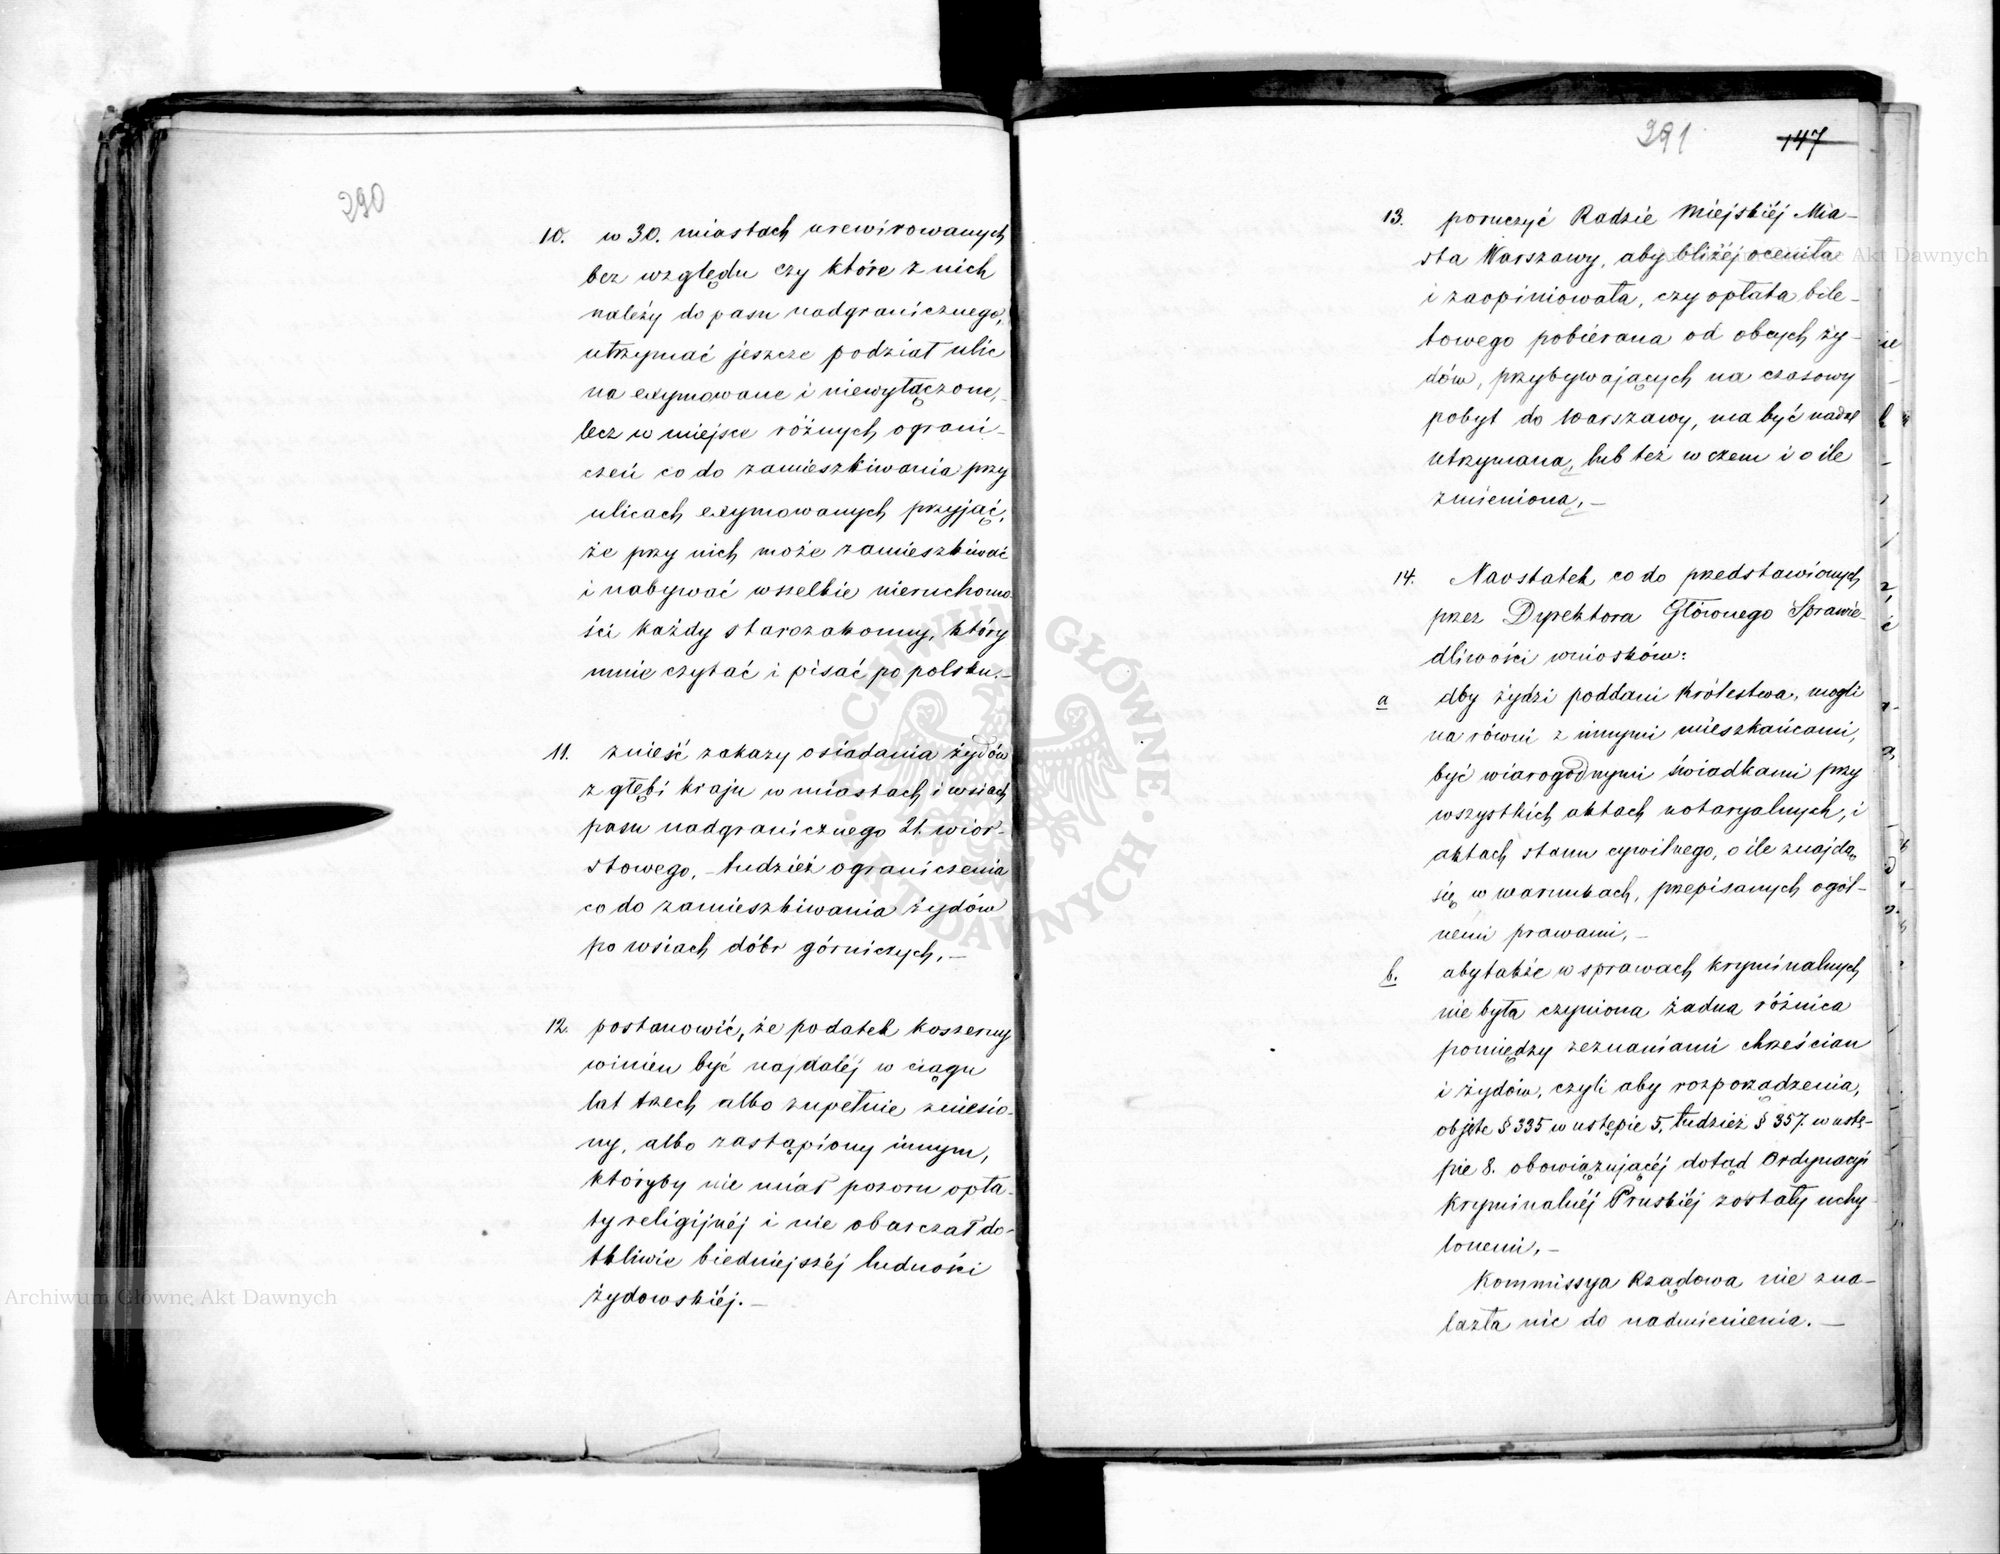 290
10. w 30. miastach urewirowanych
bez względu czy które z nich
należy do pasu nadgranicznego,
utrzymać jeszcze podział ulic
na exymowane i niewyłączone,
lecz w miejsce różnych ograni-
czeń co do zamieszkiwania przy
ulicach exymowanych przyjąć,
że przy nich może zamieszkiwać
i nabywać wszelkie nieruchomo
ści każdy starozakonny, który
umie czytać i pisać po polsku.–
11. znieść zakazy osiadania żydów
z głębi kraju w miastach i wsiach
pasu nadgranicznego 21. wior-
stowego, – tudzież ograniczenia
co do zamieszkiwania żydów
po wsiach dóbr górniczych, –
12. postanowić, że podatek koszerny
winien być najdaléj w ciągu
lat trzech albo zupełnie zniesio-
ny, albo zastąpiony innym,
któryby nie miał pozoru opła-
ty religijnéj i nie obarczał do-
tkliwie biedniejszéj ludności
żydowskiéj. –
291 147
13. poruczyć Radzie Miejskiéj Mia-
sta Warszawy, aby bliżéj oceniła
i zaopiniowała, czy opłata bile-
towego pobierana od obcych ży-
dów, przybywających na czasowy
pobyt do Warszawy, ma być nadal
utrzymaną, lub też w czem i o ile
zmienioną, –
14. Naostatek co do przedstawionych
przez Dyrektora Głównego Sprawie-
dliwości wniosków:
a aby żydzi poddani Królestwa, mogli
na równi z innymi mieszkańcami,
być wiarogodnymi świadkami przy
wszystkich aktach notaryalnych, i
aktach stanu cywilnego, o ile znajdą
się w warunkach, przepisanych ogól-
nemi prawami, –
b. aby także w sprawach kryminalnych
nie była czyniona żadna różnica
pomiędzy zeznaniami chrześcian
i żydów, czyli aby rozporządzenia,
objęte § 335 w ustępie 5, tudzież § 357. w ustę-
pie 8. obowiązującéj dotąd Ordynacyi
Kryminalnéj Pruskiéj zostały uchy
lonemi, –
Kommissya Rządowa nie zna-
lazła nic do nadmienienia. –
ARCHIWUM GŁÓWNE AKT DAWNYCH
Archiwum Główne Akt Dawnych
Akt Dawnych